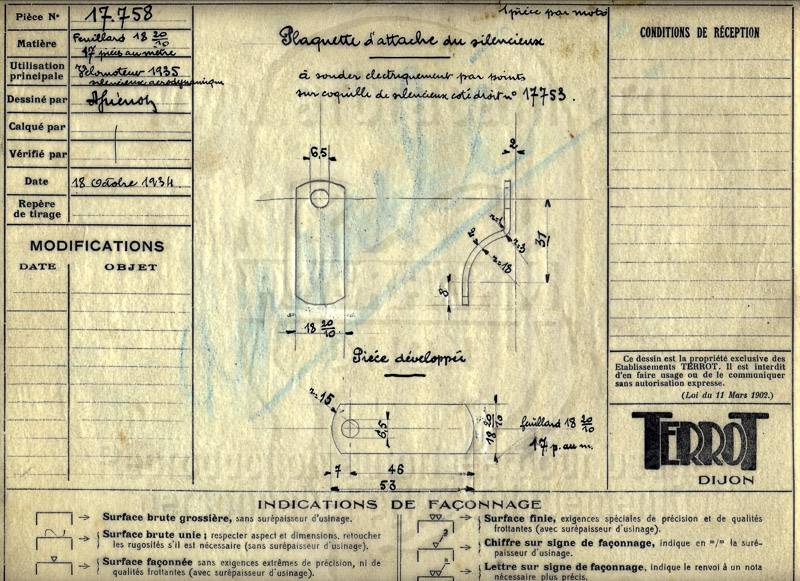 Pièce N° 17.758
Matière Feuillard 18 20/10
17 pièces au mètre
Utilisation principale Vélomoteur 1935
silencieux aérodynamique
Dessiné par
Calqué par
Vérifié par
Date 18 Octobre 1934.
Repère de tirage
MODIFICATIONS
DATE OBJET
1 pièce par moto
Plaquette d'attache du silencieux
à souder électriquement par points
sur coquille de silencieux coté droit n° 17753.
6,5
2
r=3
2
r=18
31
8
18 20/10
Pièce développée
r=15
6,5
18 20/10
feuillard 18 20/10
17 p. au m.
7 46
53
CONDITIONS DE RÉCEPTION
Ce dessin est la propriété exclusive des
Etablissements TERROT. Il est interdit
d'en faire usage ou de le communiquer
sans autorisation expresse.
(Loi du 11 Mars 1902.)
TERROT
DIJON
INDICATIONS DE FAÇONNAGE
Surface brute grossière, sans surépaisseur d'usinage.
Surface brute unie ; respecter aspect et dimensions, retoucher
les rugosités s'il est nécessaire (sans surépaisseur d'usinage).
Surface façonnée sans exigences extrêmes de précision, ni de
qualités frottantes (avec surépaisseur d'usinage).
Surface finie, exigences spéciales de précision et de qualités
frottantes (avec surépaisseur d'usinage).
Chiffre sur signe de façonnage, indique en m/m la surépaisseur d'usinage.
Lettre sur signe de façonnage, indique le renvoi à un nota
nécessaire plus précis.